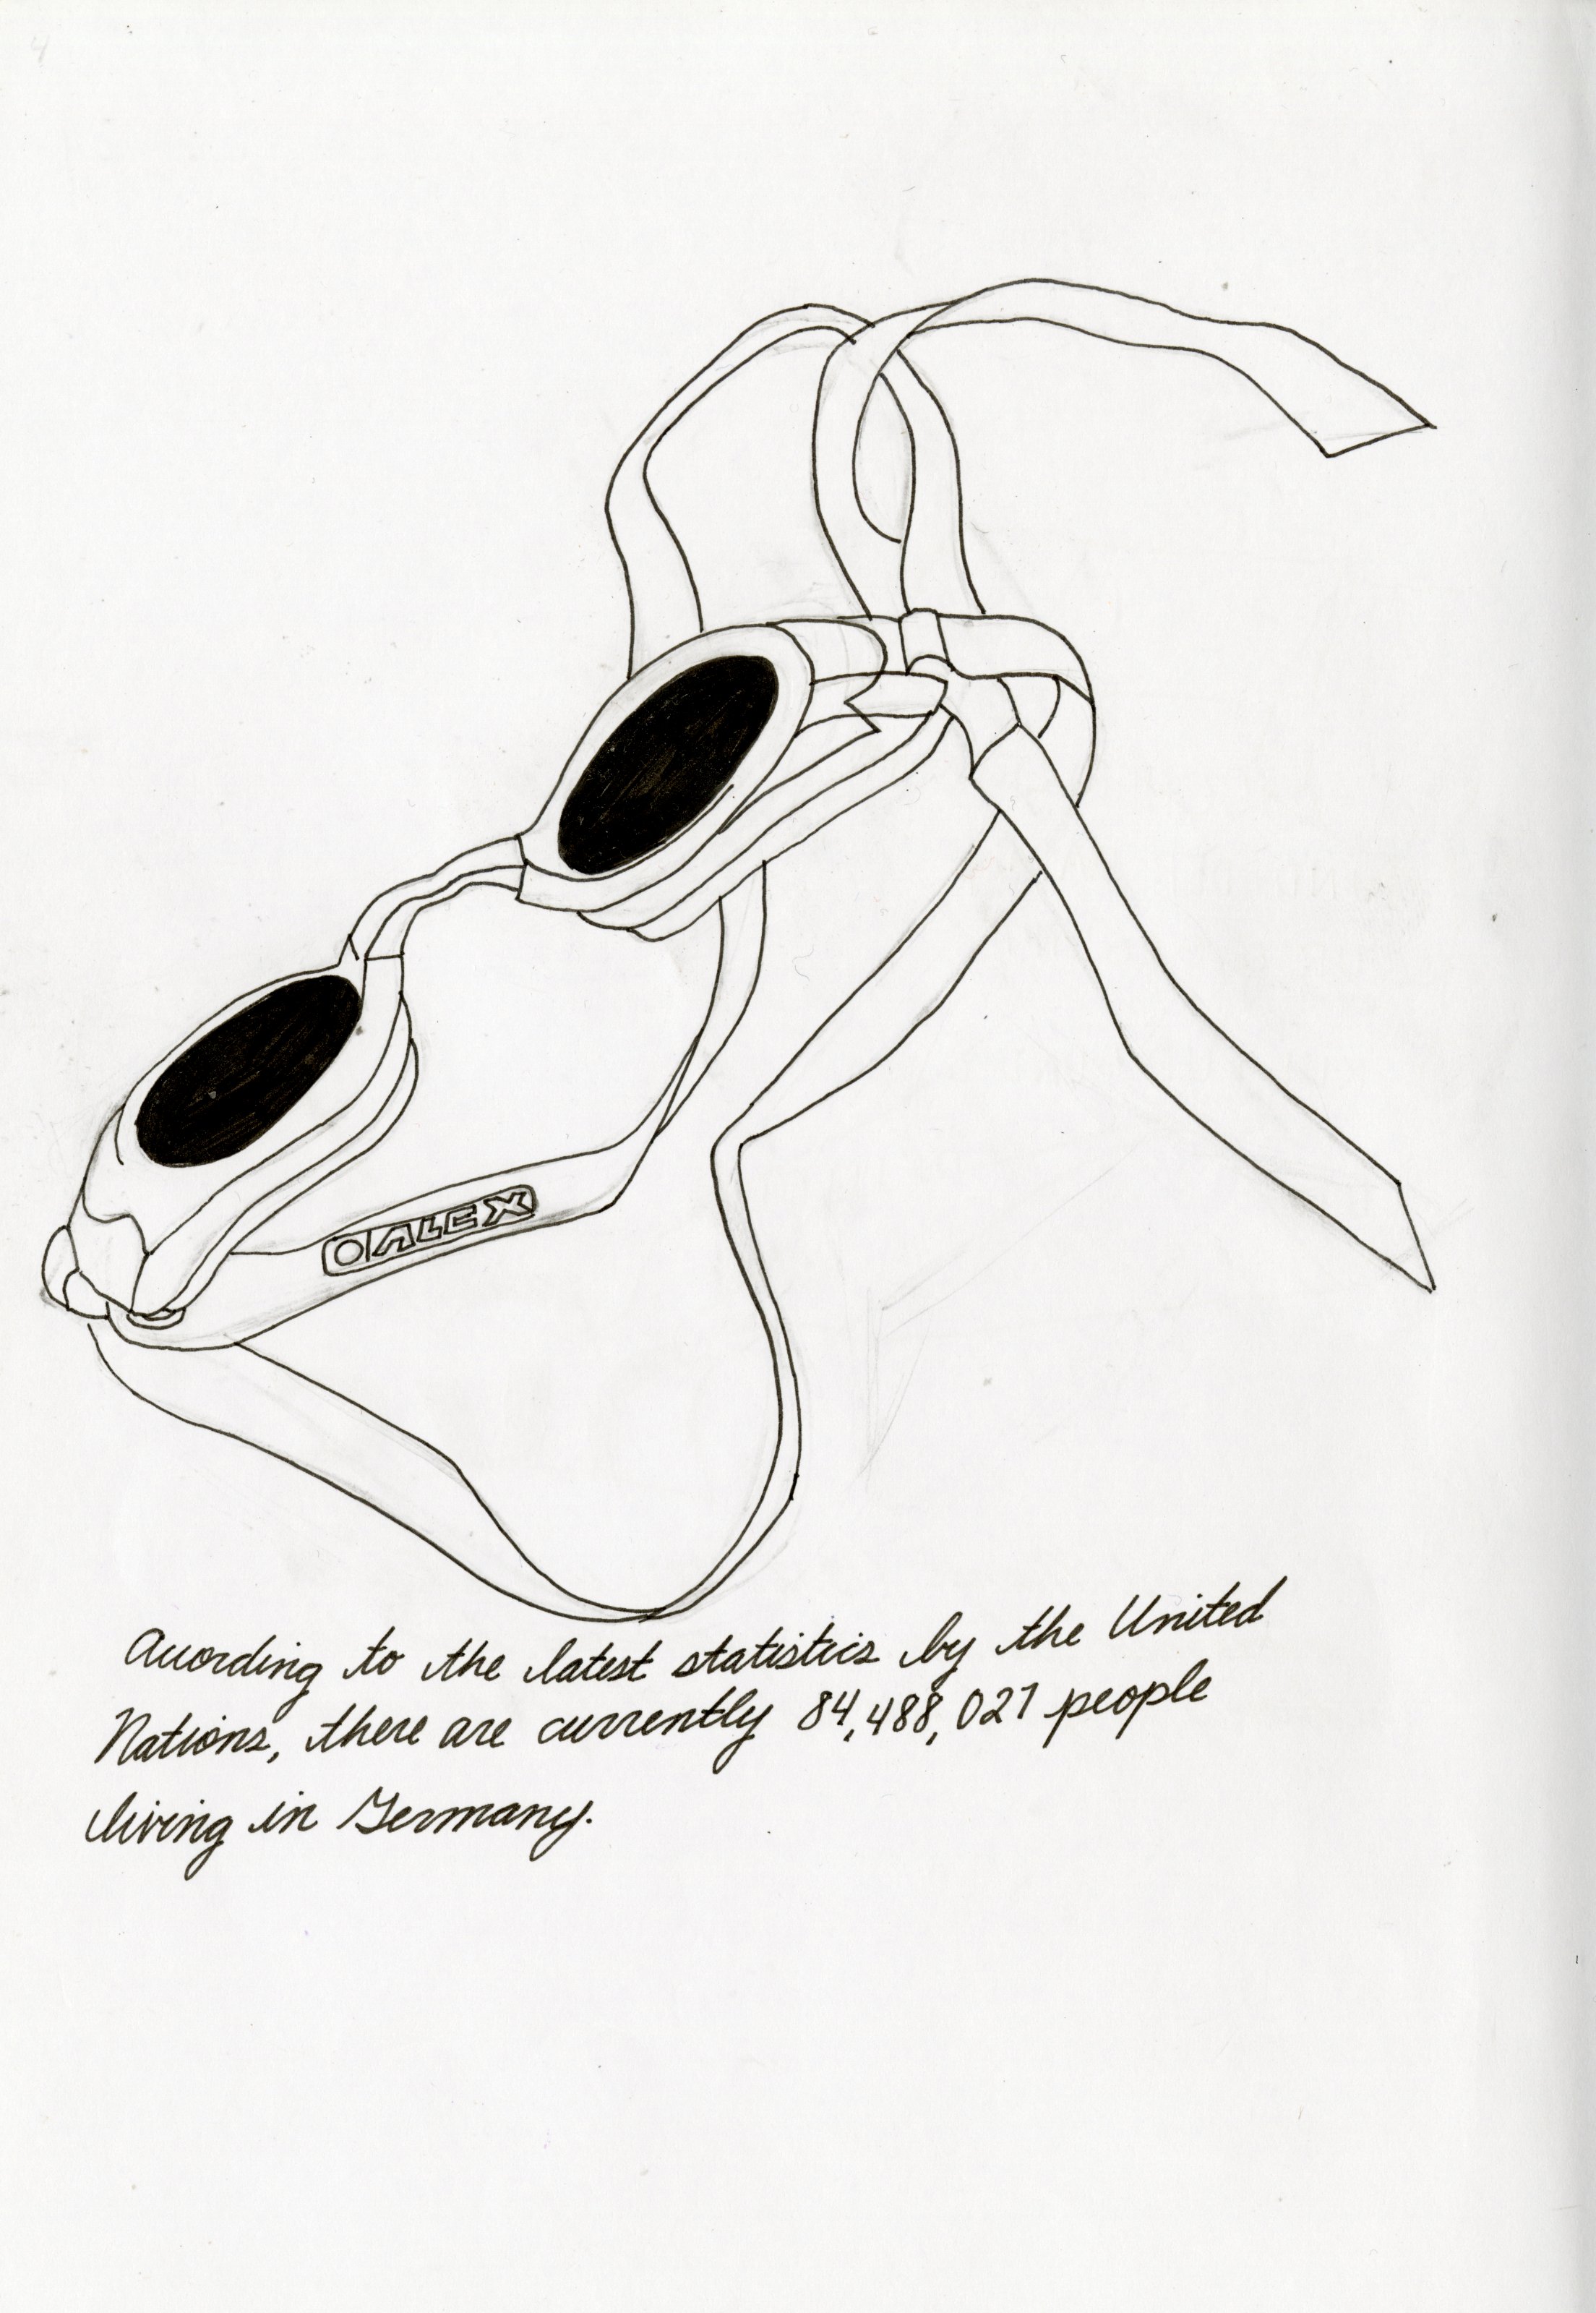 OALEX
According to the latest statistics by the United
Nations, there are currently 84,488,027 people
living in Germany.